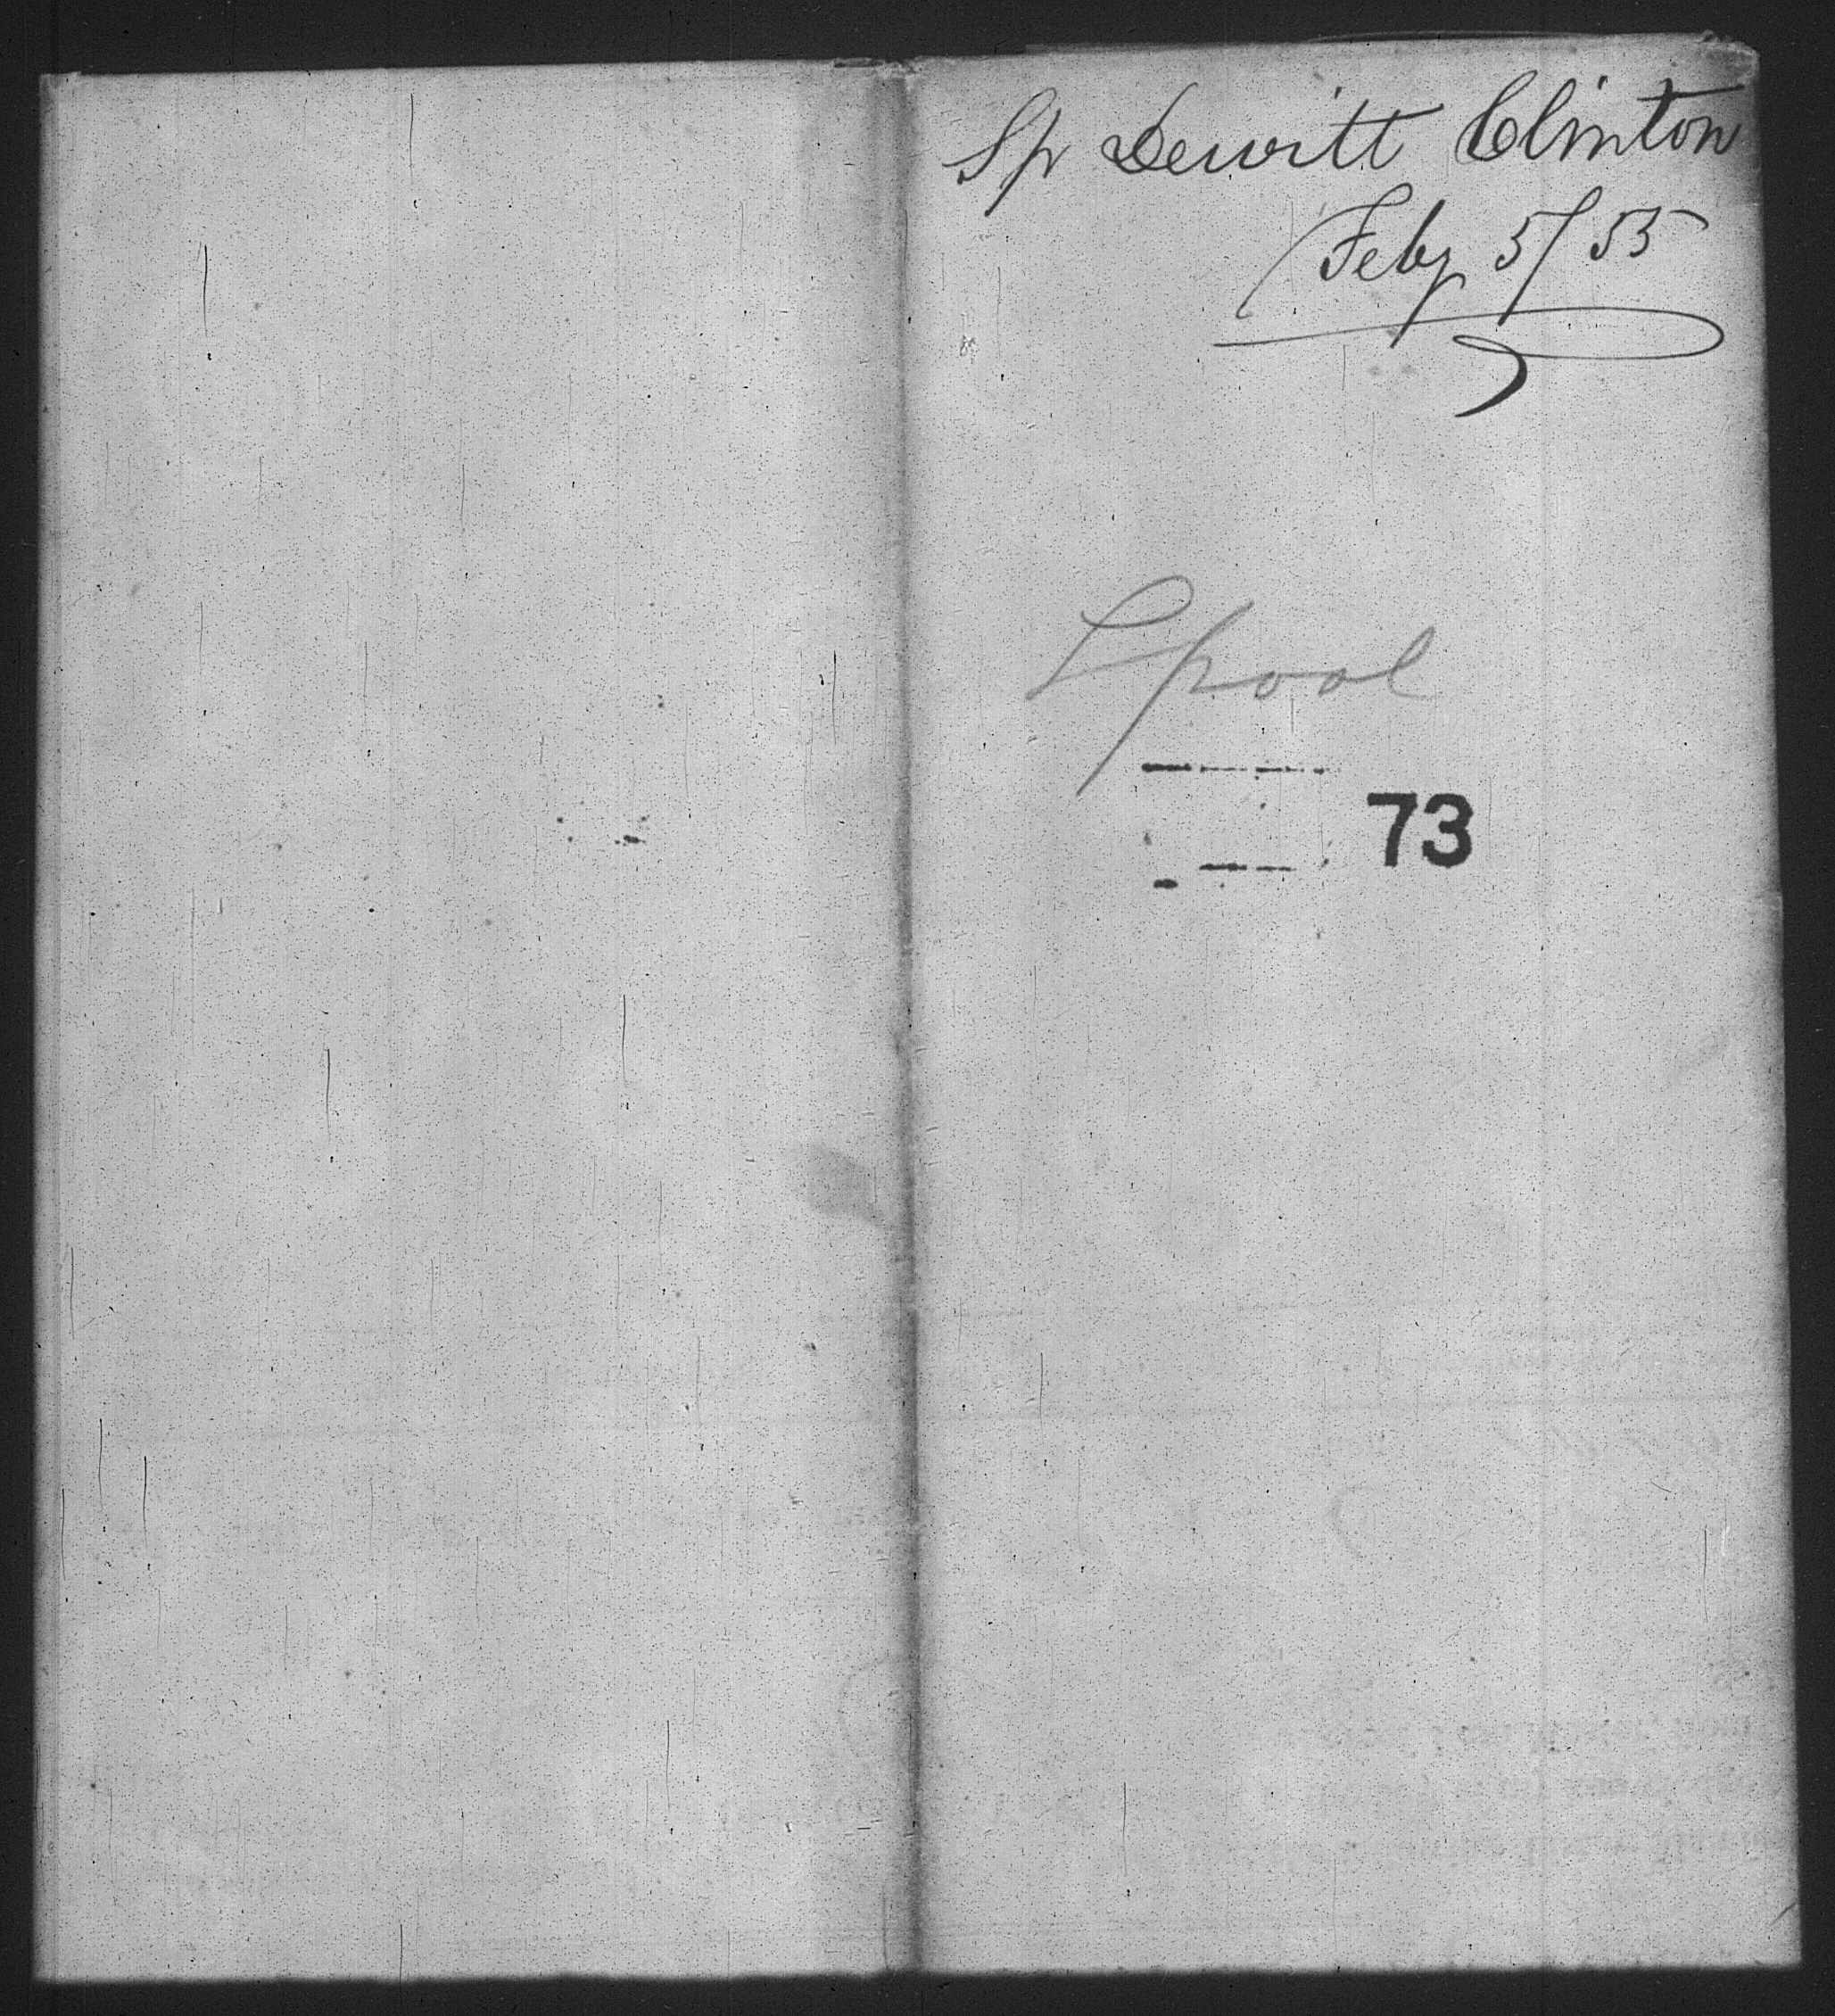 Sp Dewitt Clinton
Feby 5/55
Lpool
73